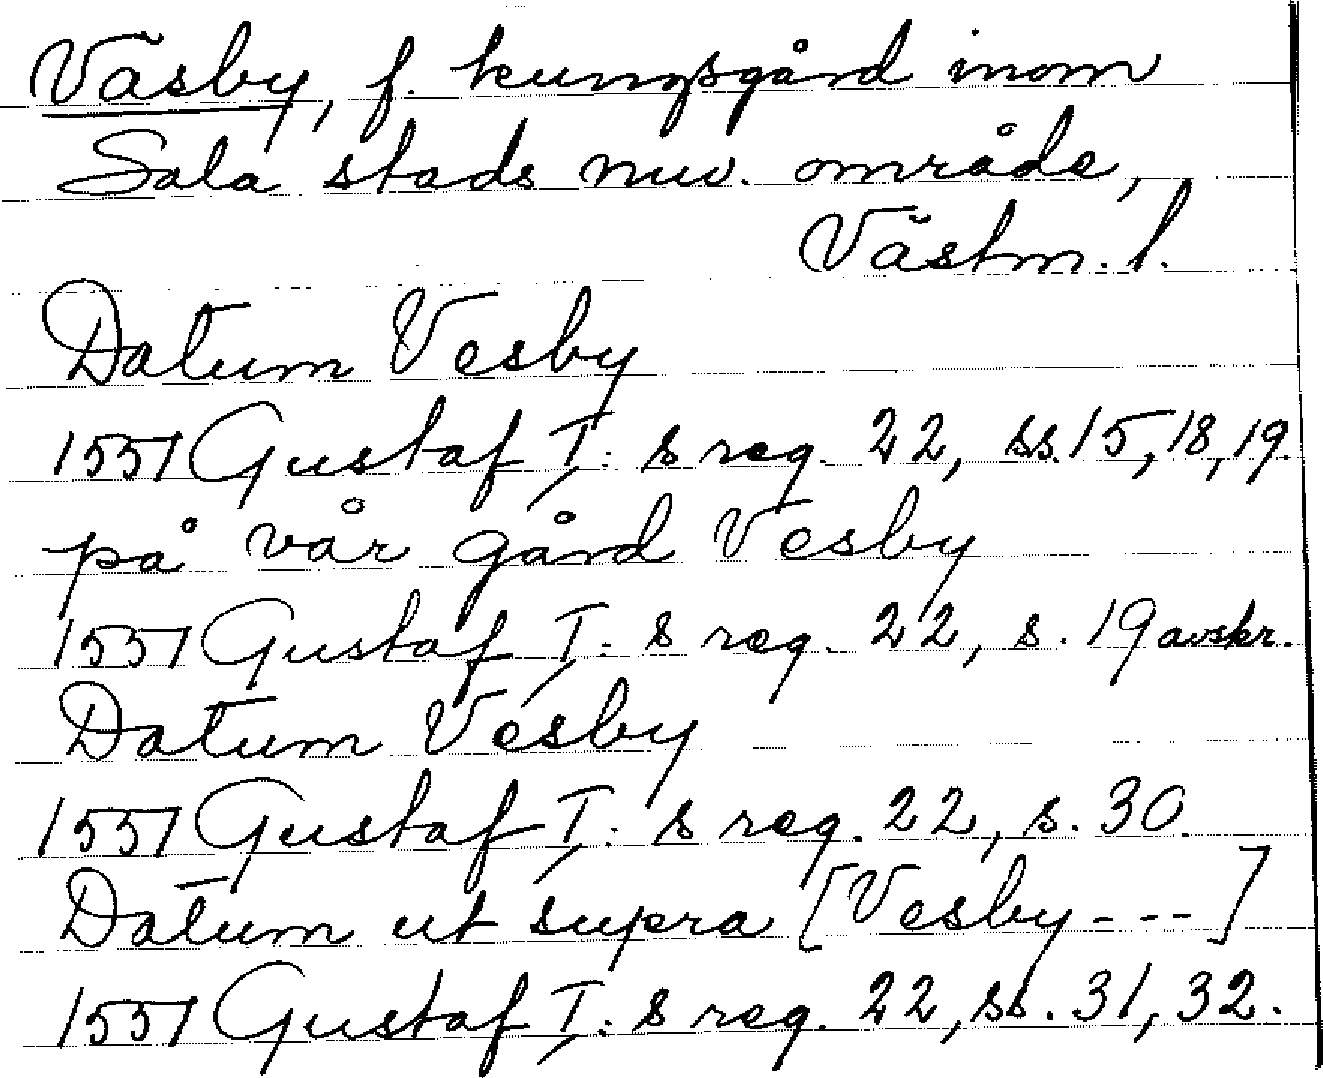 Väsby, f. kungsgård inom
Sala stads nuv. område,
Västm. l.
Datum Vesby
1551 Gustaf I: s reg. 22, ss. 15, 18, 19.
på vår gård Vesby
1551 Gustaf I: s reg. 22, s. 19 avskr.
Datum Vesby
1551 Gustaf I: s reg. 22, s. 30.
Datum ut supra [Vesby - - -]
1551 Gustaf I: s reg. 22, ss. 31, 32.